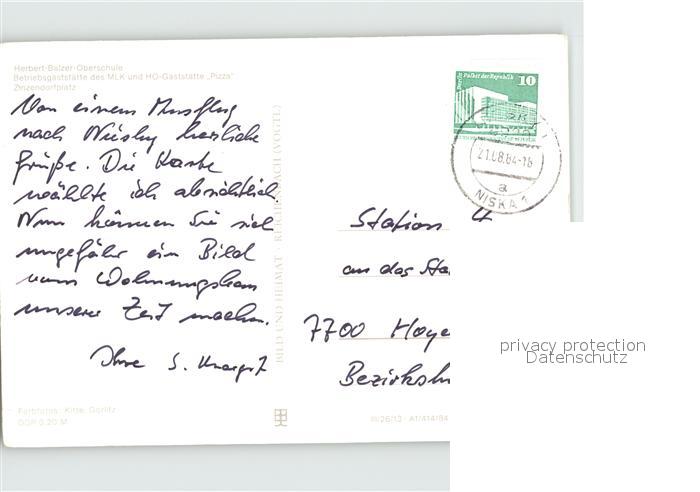 Herbert-Balzer-Oberschule
Betriebsgaststätte des MLK und HO-Gaststätte „Pizza“
Zinzendorfplatz
Von einem Ausflug
nach Niesky herzliche
Grüße. Die Karte
wählte ich absichtlich.
Nun können Sie sich
ungefähr ein Bild
vom Wohnungsbau
unserer Zeit machen.
Ihre S.
Farbfotos: Kitte, Görlitz
DDR 0,20 M
BILD UND HEIMAT REICHENBACH (VOGTL)
III/26/13 A1/414/84
Berlin Palast der Republik 10
21.08.84-18
a
NISKA 1
Station 4
an das Sta
7700 Hoye
Bezirks
privacy protection
Datenschutz